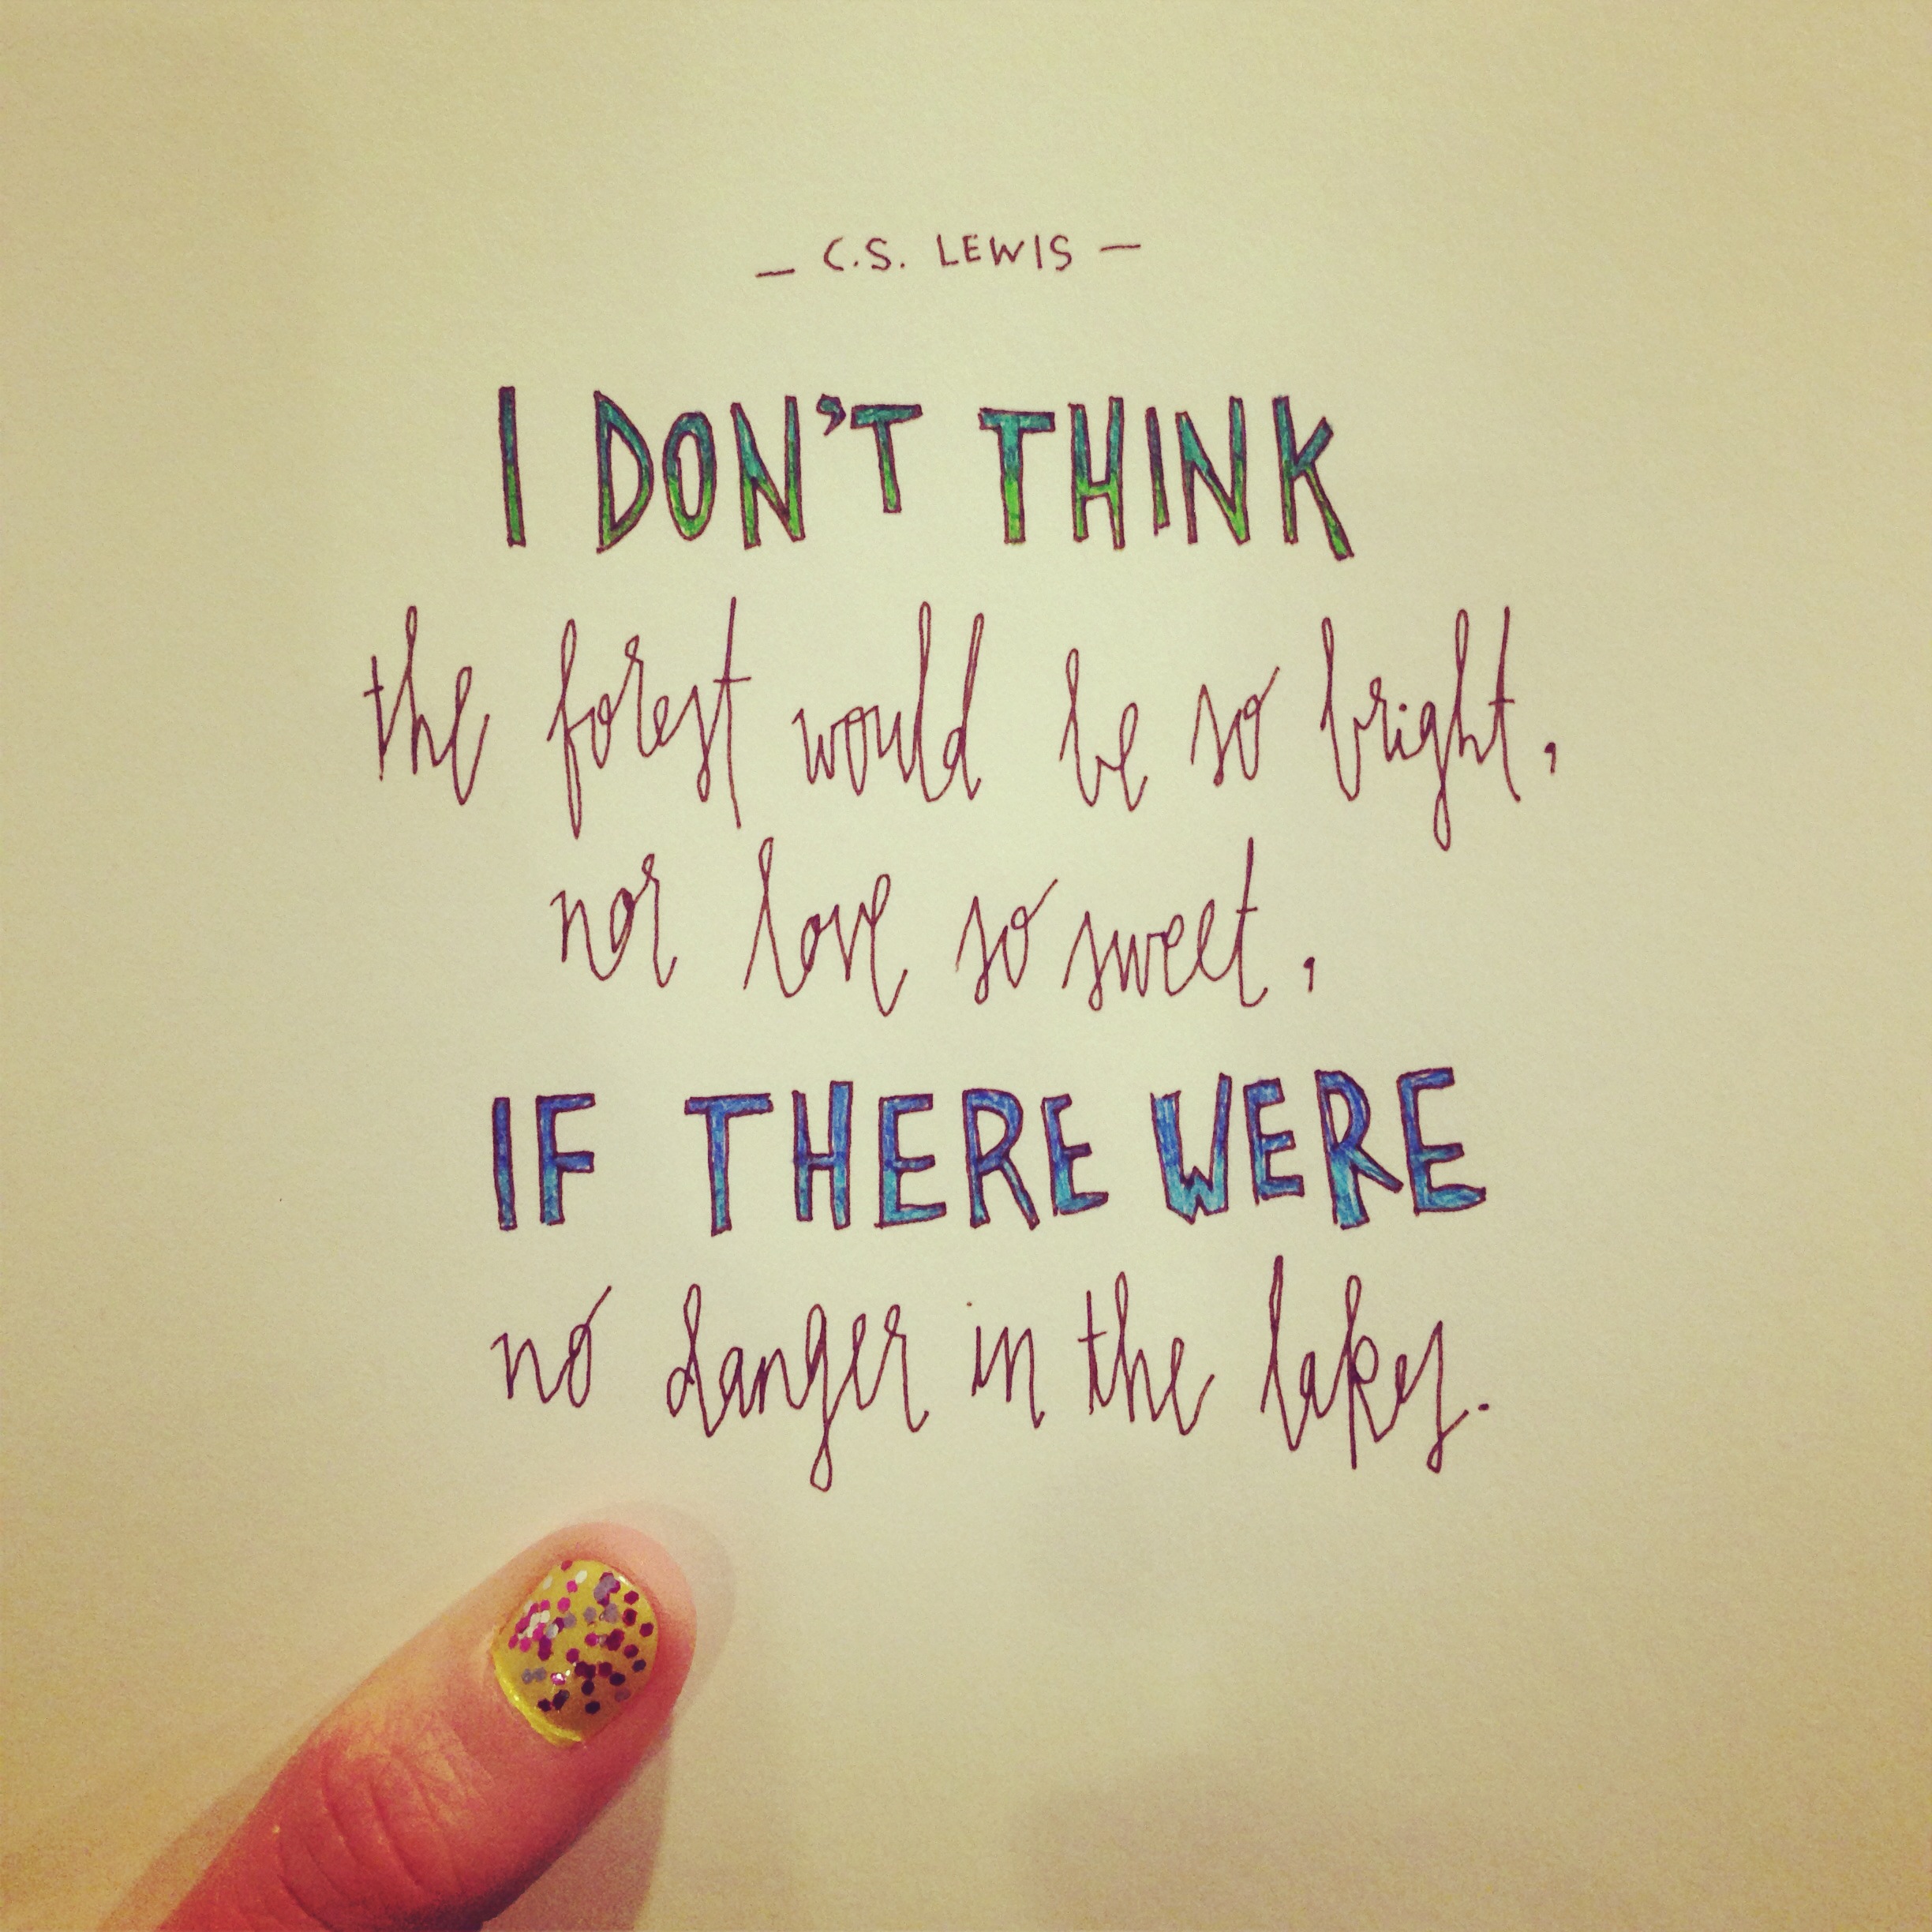 — C.S. LEWIS —
I DON'T THINK
the forest would be so bright,
nor love so sweet,
IF THERE WERE
no danger in the lakes.